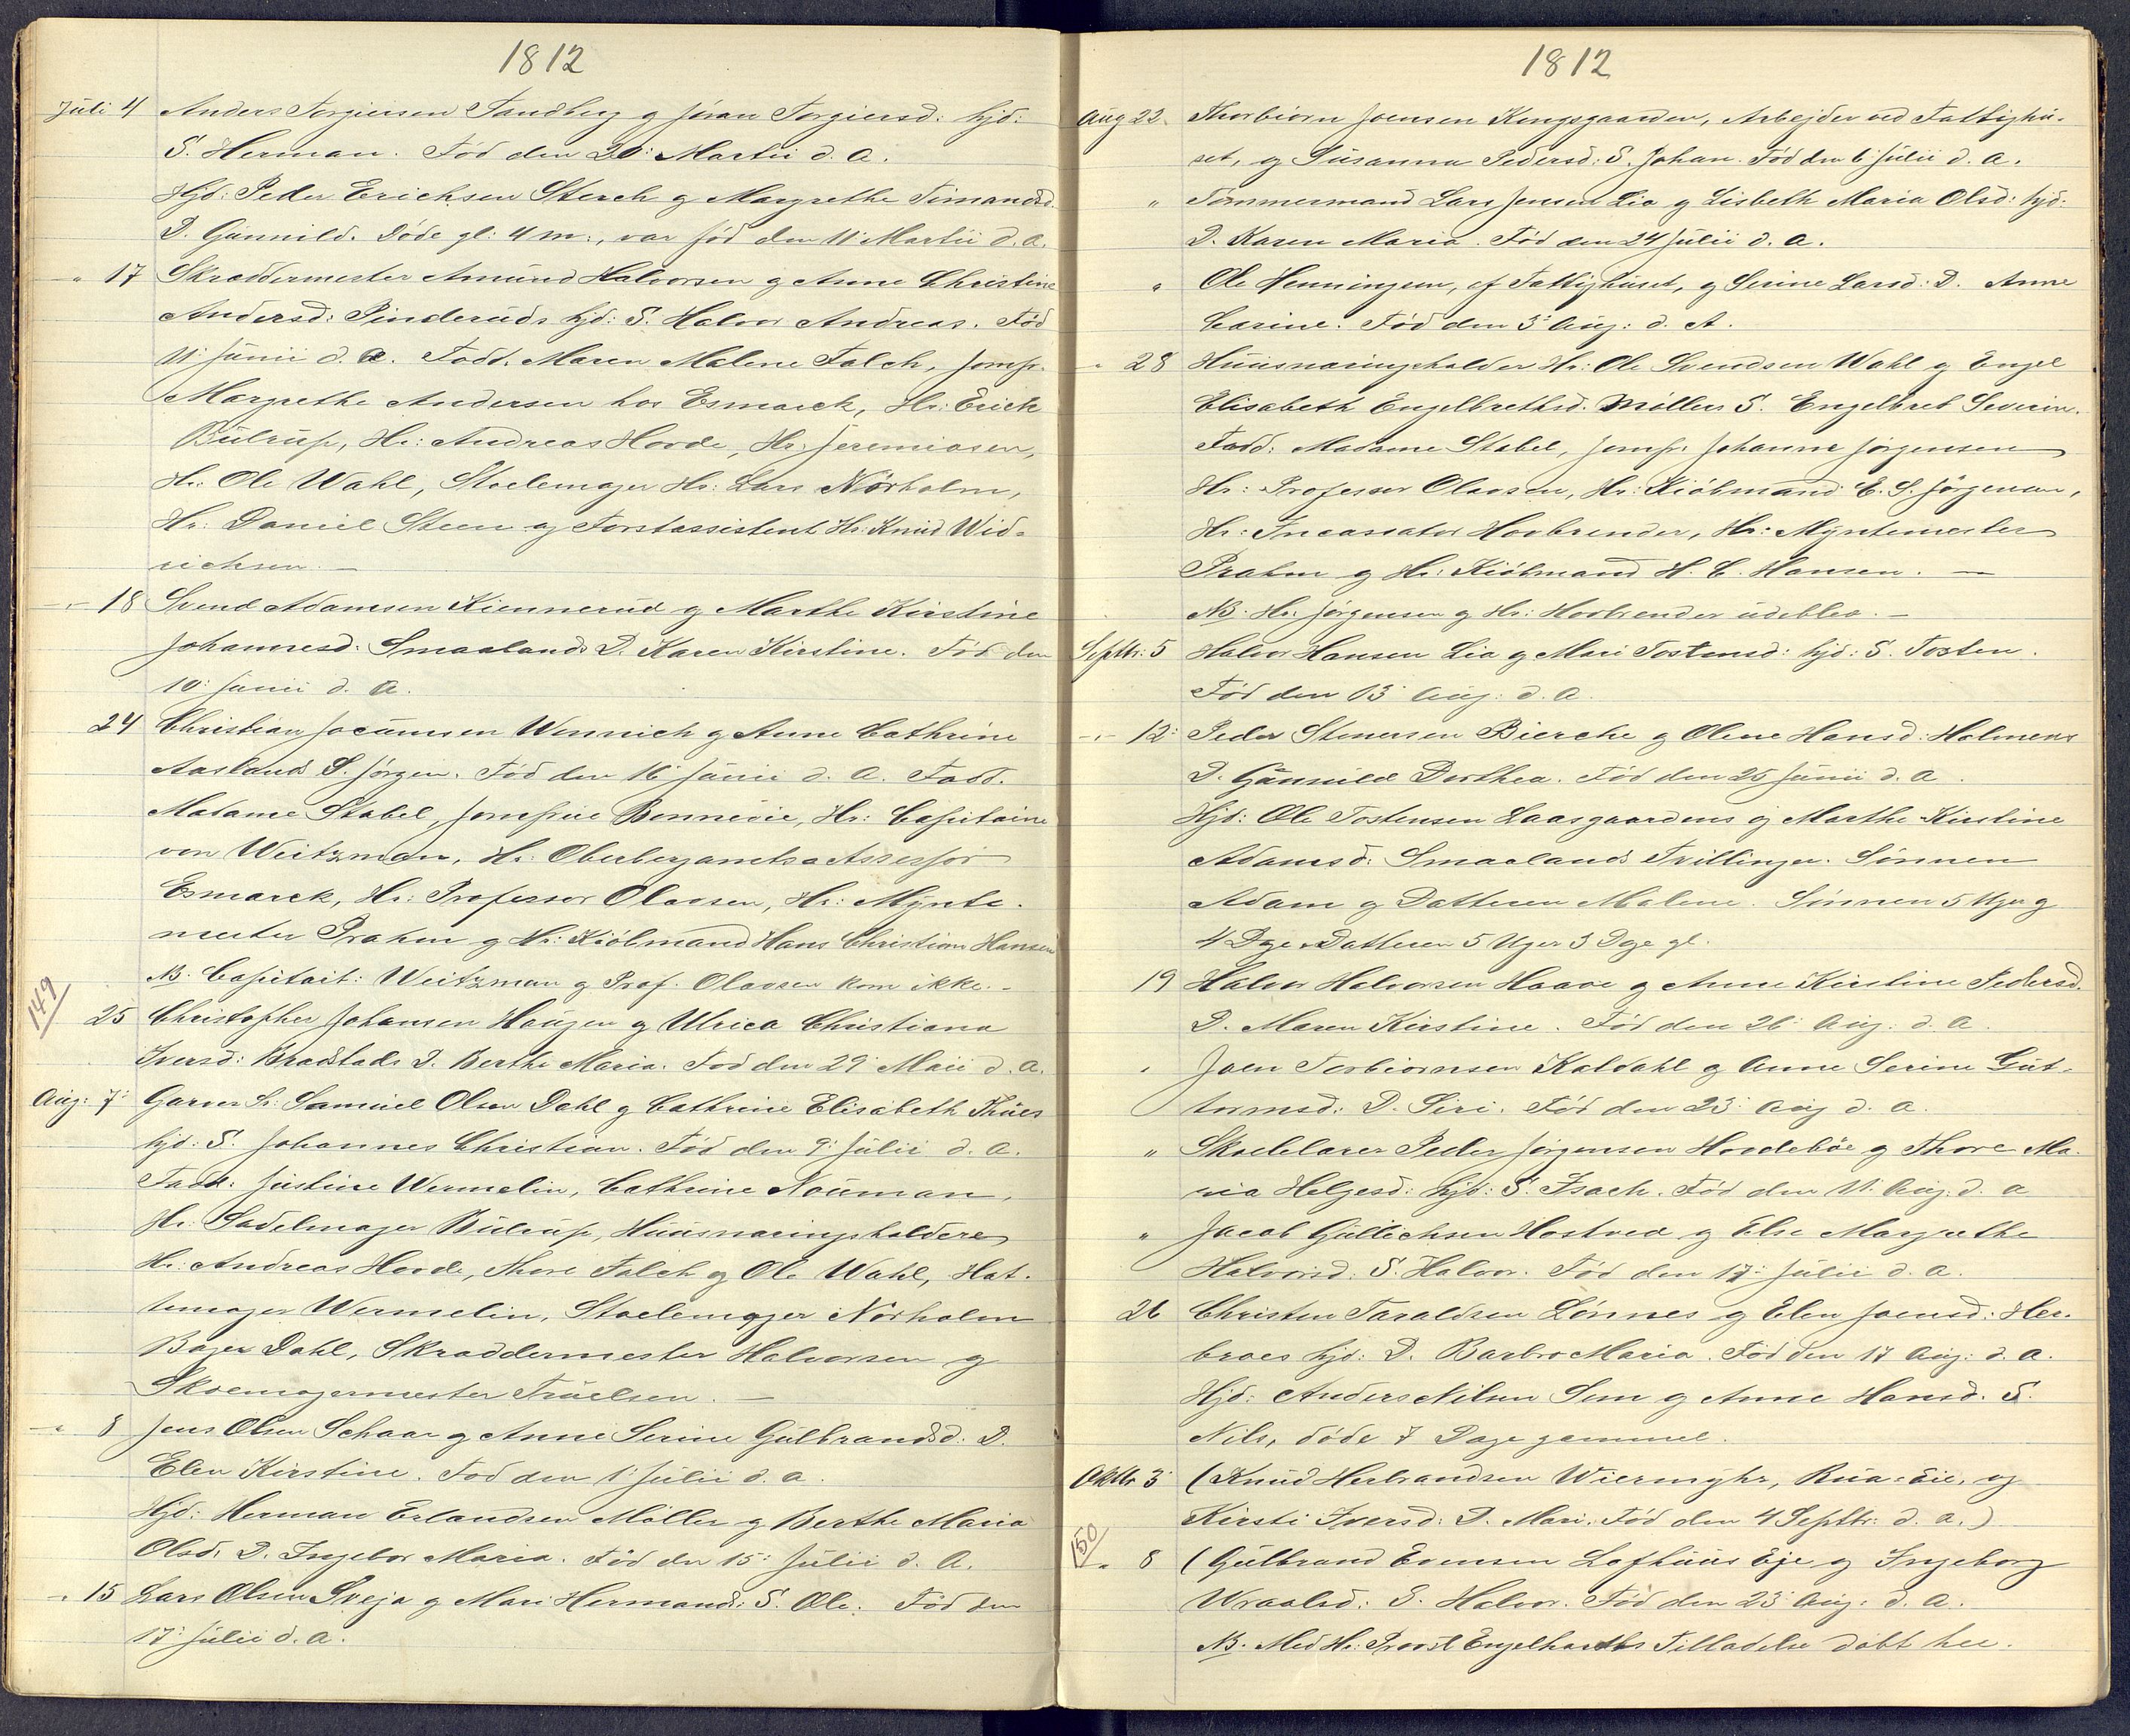 1812
Juli 4 Anders Torgiersen Sandberg g Jöran Torgiersd: hjd:
S. Herman. Föd den 20: Martii d. A.
Hjd: Peder Erichsen Sterch g Margrethe Simandsd.
D. Gunnild. Döde gl: 4 m:, var föd den 11: Martii d. A.
-"- 17 Skræddermester Amund Halvorsen g Anne Christine
Andersd: Pinderuds hjd: S. Halvor Andreas. Fød
11: Junii d. A. Fadd. Maren Malene Falch, Jomfr.
Margrethe Andersen hos Esmarck, Hr: Erich
Bülrup, Hr: Andreas Hovde, Hr: Jeremiasen,
Hr. Ole Wahl, Stolemager Hr: Lars Nörholm,
Hr: Daniel Steen og Forstassistent Hr. Knud Wid-
richsen. —
-"- 18 Svend Adamsen Kiennerud g Marthe Kirstine
Johannesd: Smaalands D. Karen Kirstine. Föd den
10: Junii d. A.
24 Christian Jocumsen Wennich g Anne Cathrine
Aaslands S. Jörgen. Föd den 16: Junii d. A. Fadd.
Madame Stabel, Jomfrue Bonnevie, Hr: Capitaine
von Weitzman, Hr. Oberbergamtsassessor
Esmarck, Hr: Professor Olavsen, Hr: Mynte-
mester Prahm g Hr: Kiöbmand Hans Christian Hansen
NB. Capitait: Weitzman g Prof. Olavsen kom ikke. -
149
25 Christopher Johansen Haugen g Ulrica Christiana
Iversd: Bradstads D. Berthe Maria. Fød den 29 Maii d. A.
Aug: 7: Garver Sr. Samuel Olsen Dahl g Cathrine Elisabeth Thues
hjd: S. Johannes Christian. Föd den 9: Julii d. A.
Fadd: Justine Wermelin, Cathrine Nouman,
Hr. Sadelmager Bülrup, Huusnæringsholdere
Hr: Andreas Hovde, Thore Falch og Ole Wahl, Hat-
temager Wermelin, Stolemager Nörholm
Bager Dahl, Skræddermester Halvorsen g
Skoemagermester Truelsen. —
-"- 8 Jens Olsen Schaar g Anne Serine Gulbrandsd. D.
Elen Kirstine. Fød den 1: Julii d. A.
Hjd: Herman Erlandsen Möller g Berthe Maria
Olsd. D. Ingebor Maria. Föd den 15: Julii d. A.
-"- 15 Lars Olsen Sveja g Mari Hermands: S. Ole. Föd den
17: Julii d. A.
1812
Aug 22. Thorbiörn Joensen Kongsgaarden, Arbejder ved Fattighu-
set, g Susanna Pedersd: S. Johan. Föd den 6: Julii d. A.
" Tömmermand Lars Jensen Lia g Lisbeth Maria Olsd: hjd:
D. Karen Maria. Föd den 24 Julii d. A.
" Ole Henningsen, af Fattighuset, g Serine Larsd: D. Anne
Carine. Föd den 3: Aug: d. A.
-"- 28 Huusnæringsholder Hr: Ole Svendsen Wahl g Engel
Elisabeth Engelbrethsd. Möllers S. Engelbret Severin.
Fadd: Madame Stabel, Jomfr. Johanne Jörgensen
Hr: Professor Olavsen, Hr: Kiöbmand E. S. Jörgensen,
Hr: Incassator Horbrender, Hr: Myntemester
Prahm g Hr: Kiöbmand H. C. Hansen. —
NB. Hr. Jörgensen g Hr: Horbrender udeblev. —
Septbr. 5 Halvor Hansen Lia g Mari Tostensd: hjd: S. Tosten.
Föd den 13: Aug: d. A
-"- 12: Peder Stenersen Bierche g Olene Hansd: Holmens
D. Gunnild Dorthea. Föd den 25 Junii d. A.
Hjd: Ole Tostensen Laasgaardens og Marthe Kirstine
Adamsd: Smaalands Tvillinger. Sönnen
Adam g Datteren Malene. Sönnen 5 Uger g
4 Dge. Datteren 5 Uger 3 Dge gl.
19 Halvor Halvorsen Haave g Anne Kirstine Pedersd.
D. Maren Kirstine. Föd den 26: Aug: d. A
" Joen Torbiörnsen Kaldahl g Anne Serine Gut-
tormsd: D. Siri. Föd den 23: Aug d. A.
" Skoelelærer Peder Jörgensen Hovdeböe g Thore Ma-
ria Helgesd: hjd: S. Isach. Föd den 11. Aug. d. A
" Jacob Gullichsen Hostved g Else Margrethe
Halvorsd. S. Halvor. Föd den 17: Julii d. A.
26 Christen Taraldsen Lönnes g Elen Joensd: Her-
broes hjd: D. Barbro Maria. Föd den 17 Aug: d. A.
Hjd: Anders Nilsen Sem g Anne Hansd. S.
Nils, döde 7 Dage gammel.
Oktbr. 3: (Knud Herbrandsen Wiermyhr, Rua=Eie, og
Kirsti Iversd: D. Mari. Föd den 4 Septbr: d. A.)
150
-"- 8 (Gulbrand Evensen Lofhuus Eje g Ingeborg
Wraalsd: S. Halvor. Föd den 23: Aug: d. A.
NB. Med Hr: Provst Engelharths Tilladelse döbt her.